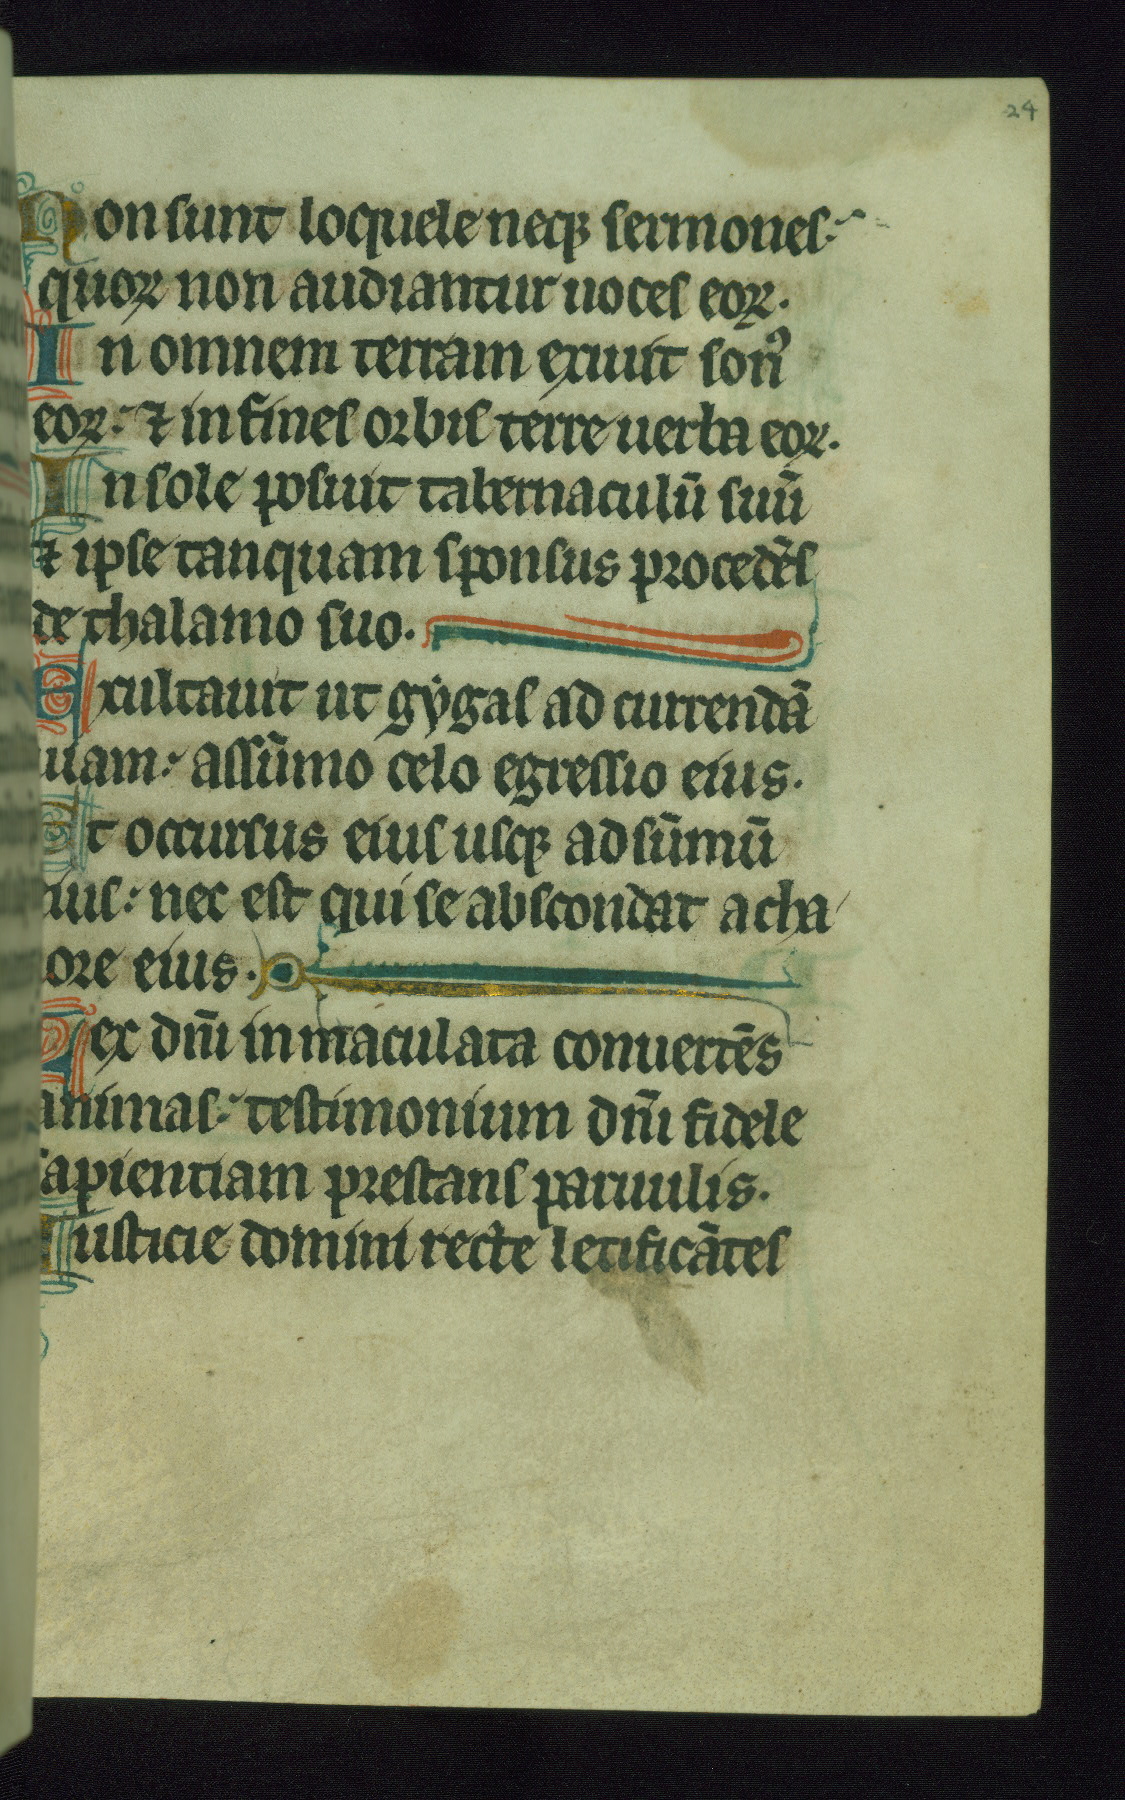 24
Non sunt loquele neqꝫ sermones:
quoꝝ non audiantur uoces eoꝝ.
In omnem terram exiuit sonꝰ
eoꝝ: ⁊ in fines orbis terre uerba eoꝝ.
In sole posuit tabernaculū suū
⁊ ipse tanquam sponsus procedēs
de thalamo suo.
Exultauit ut gẏgas ad currendā
uiam: assūmo celo egressio eius.
Et occursus eius usqꝫ ad sūmū
eius: nec est qui se abscondat a cha
lore eius.
Lex dn̄i inmaculata conuertēs
animas: testimonium dn̄i fidele
sapientiam prestans paruulis.
Iusticie domini recte letificātes